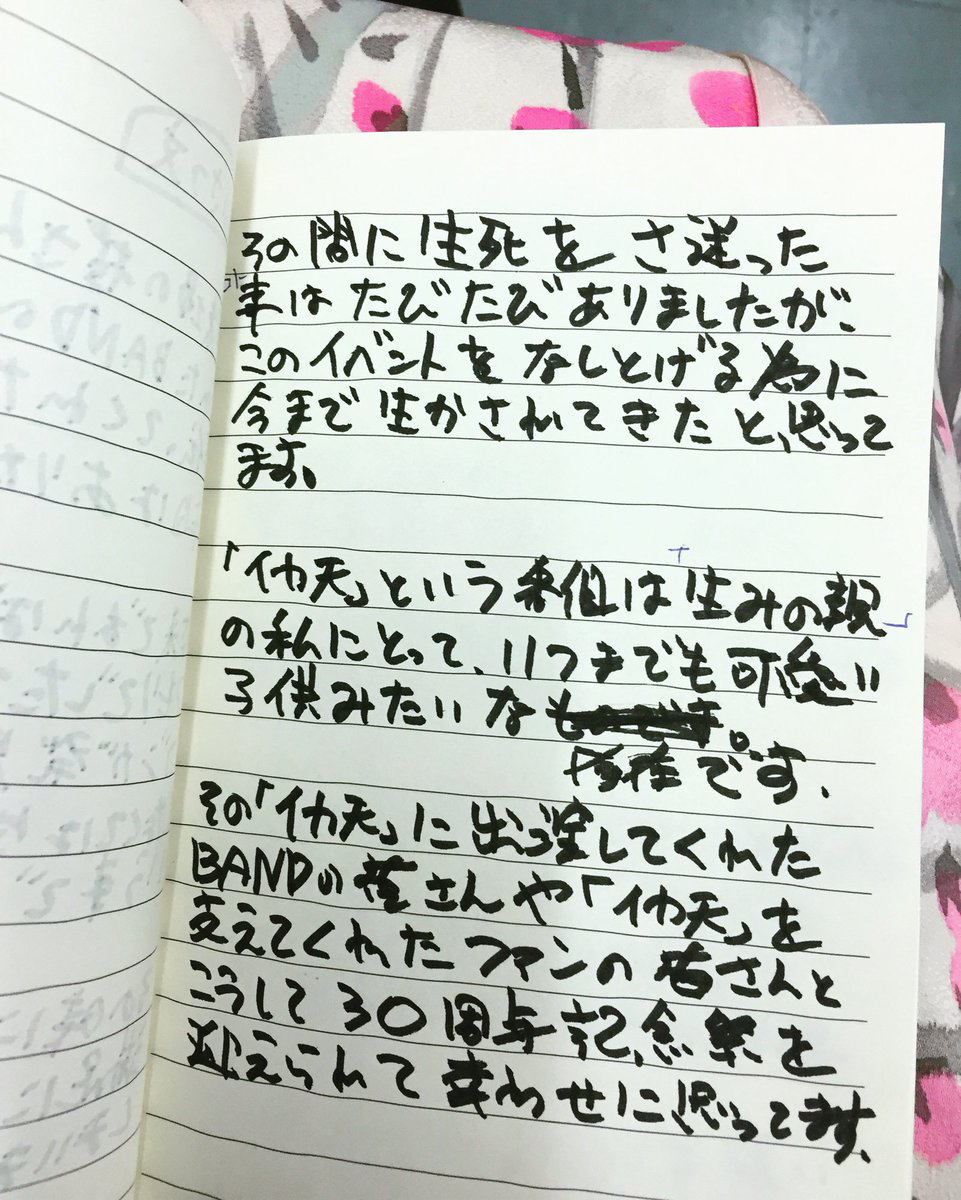 その間に生死をさ迷った
事はたびたびありましたが、
このイベントをなしとげる為に
今まで生かされてきたと思って
ます。
「イカ天」という番組は生みの親
の私にとって、いつまでも可愛い
子供みたいな
です.
その「イカ天」に出演してくれた
BANDの皆さんや「イカ天」を
支えてくれたファンの皆さんと
こうして30周年記念祭を
迎えられて幸わせに思ってます。